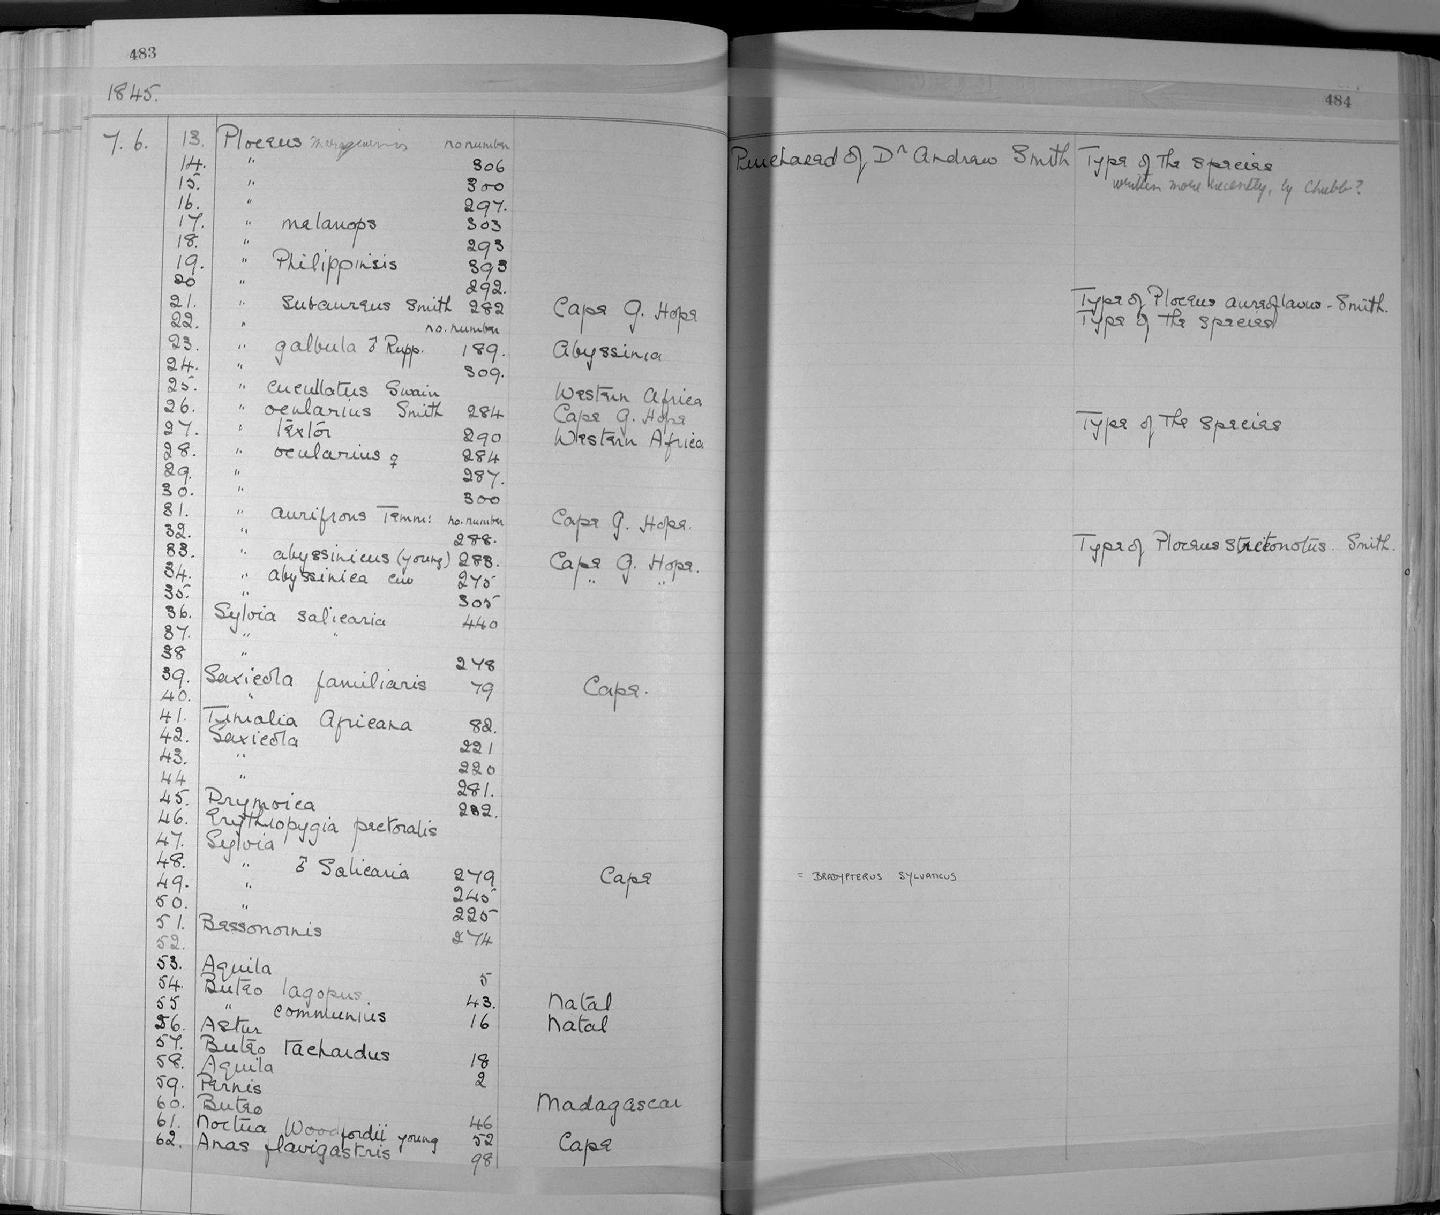 483
1845.
7. 6. 13. Ploceus no number
14. " 306
15. " 300
16. " 297.
17. " melanops 303
18. " 293
19. " Philippinsis 393
20 " 292.
21. " Subaureus Smith 282 Cape G. Hope
22. " no. number
23. " galbula ♂ Rupp. 189. Abyssinia
24. " 309.
25. " cucullatus Swain Western Africa
26. " ocularius Smith 284 Cape G. Hope
27. " Textor 290 Western Africa
28. " ocularius ♀ 284
29. " 287.
30. " 300
31. " aurifrons Temm: no. number Cape G. Hope.
32. " 288.
33. " abyssinicus (young) 288. Cape G. Hope.
34. " abyssinica cuv 275 " "
35. " 305
36. Sylvia salicaria 440
37. " "
38 " 278
39. Saxicola familiaris 79 Cape.
40. "
41. Timalia Africana 82.
42. Saxicola 221
43. " 220
44 " 281.
45. Drymoica 282.
46. Erythropygia pectoralis
47. Sylvia
48. " ♂ Salicaria 279 Cape
49. " 245
50. " 225
51. Bessonornis 274
52.
53. Aquila 5
54. Buteo lagopus. 43. Natal
55 " communius 16 Natal
56. Astur
57. Buteo Tachardus 18
58. Aquila 2
59. Pernis
60. Buteo Madagascar
61. Noctua Woodfordii young 46
62. Anas flavigastris 52 Cape
98
484
Purchased of Dr Andrew Smith Type of the species
written more recently, by Chubb?
Type of Ploceus aureoflavus - Smith.
Type of the species
Type of the species
Type of Ploceus strictonotus. Smith.
= BRADYPTERUS SYLVATICUS